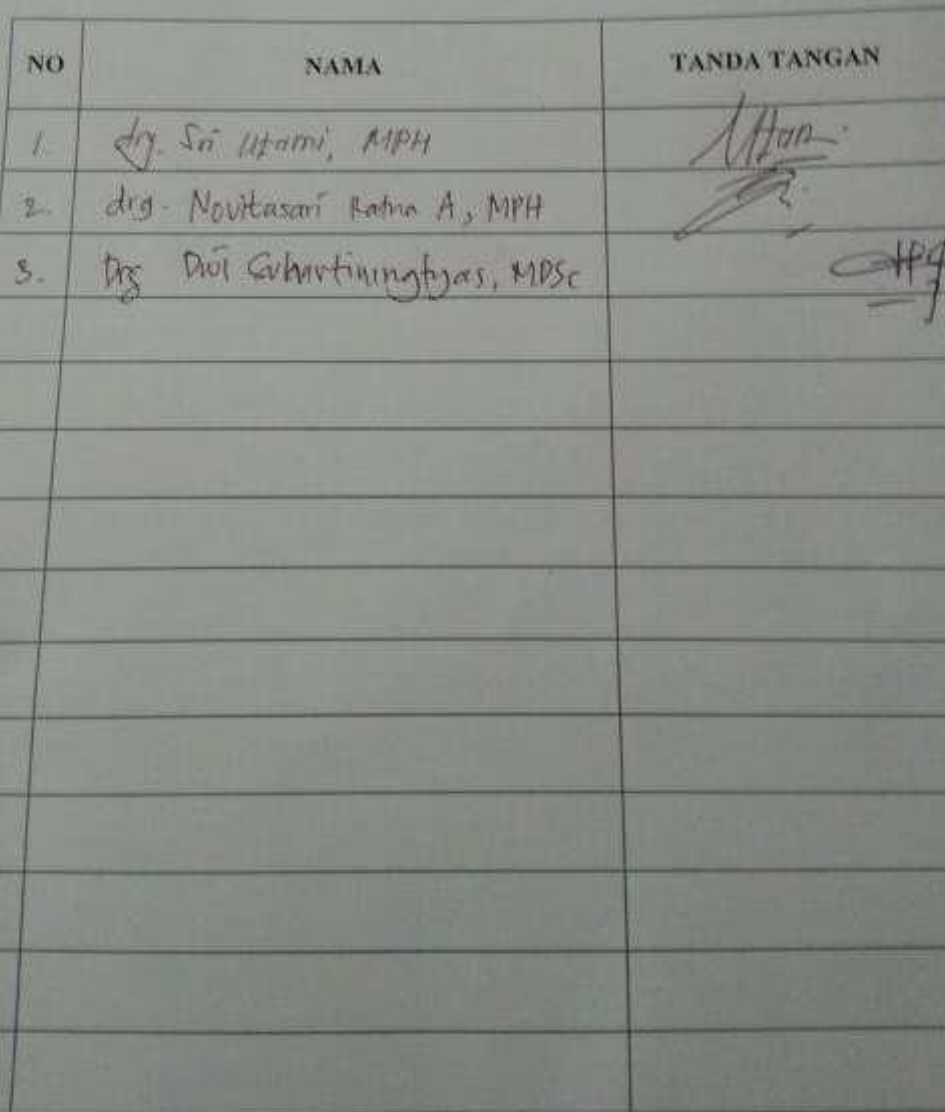 NO NAMA TANDA TANGAN
1. drg. Sri Utami, MPH
2. drg. Novitasari Ratna A, MPH
3. Drg Dwi Suhartiningtyas, MDSc